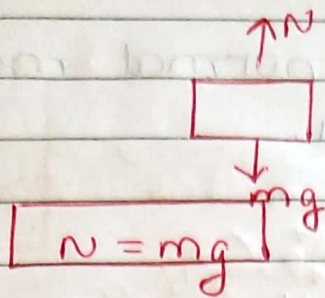 N
mg
N = mg